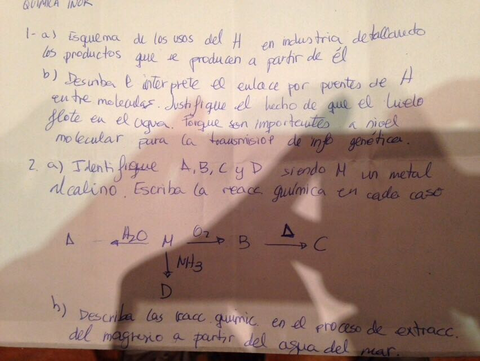 QUÍMICA INOR
1- a) Esquema de los usos del H en industria detallando
los productos que se producen a partir de él
b) Describa e interprete el enlace por puentes de H
entre moleculas. Justifique el hecho de que el hielo
flote en el agua. Porque son importantes a nivel
molecular para la transmision de info genética.
2. a) Identifique A, B, C y D siendo M un metal
alcalino. Escriba la reacc química en cada caso
A ← H2O M O2 → B Δ → C
↓ NH3
D
b) Describa las reacc quimic en el proceso de extracc.
del magnesio a partir del agua del mar.